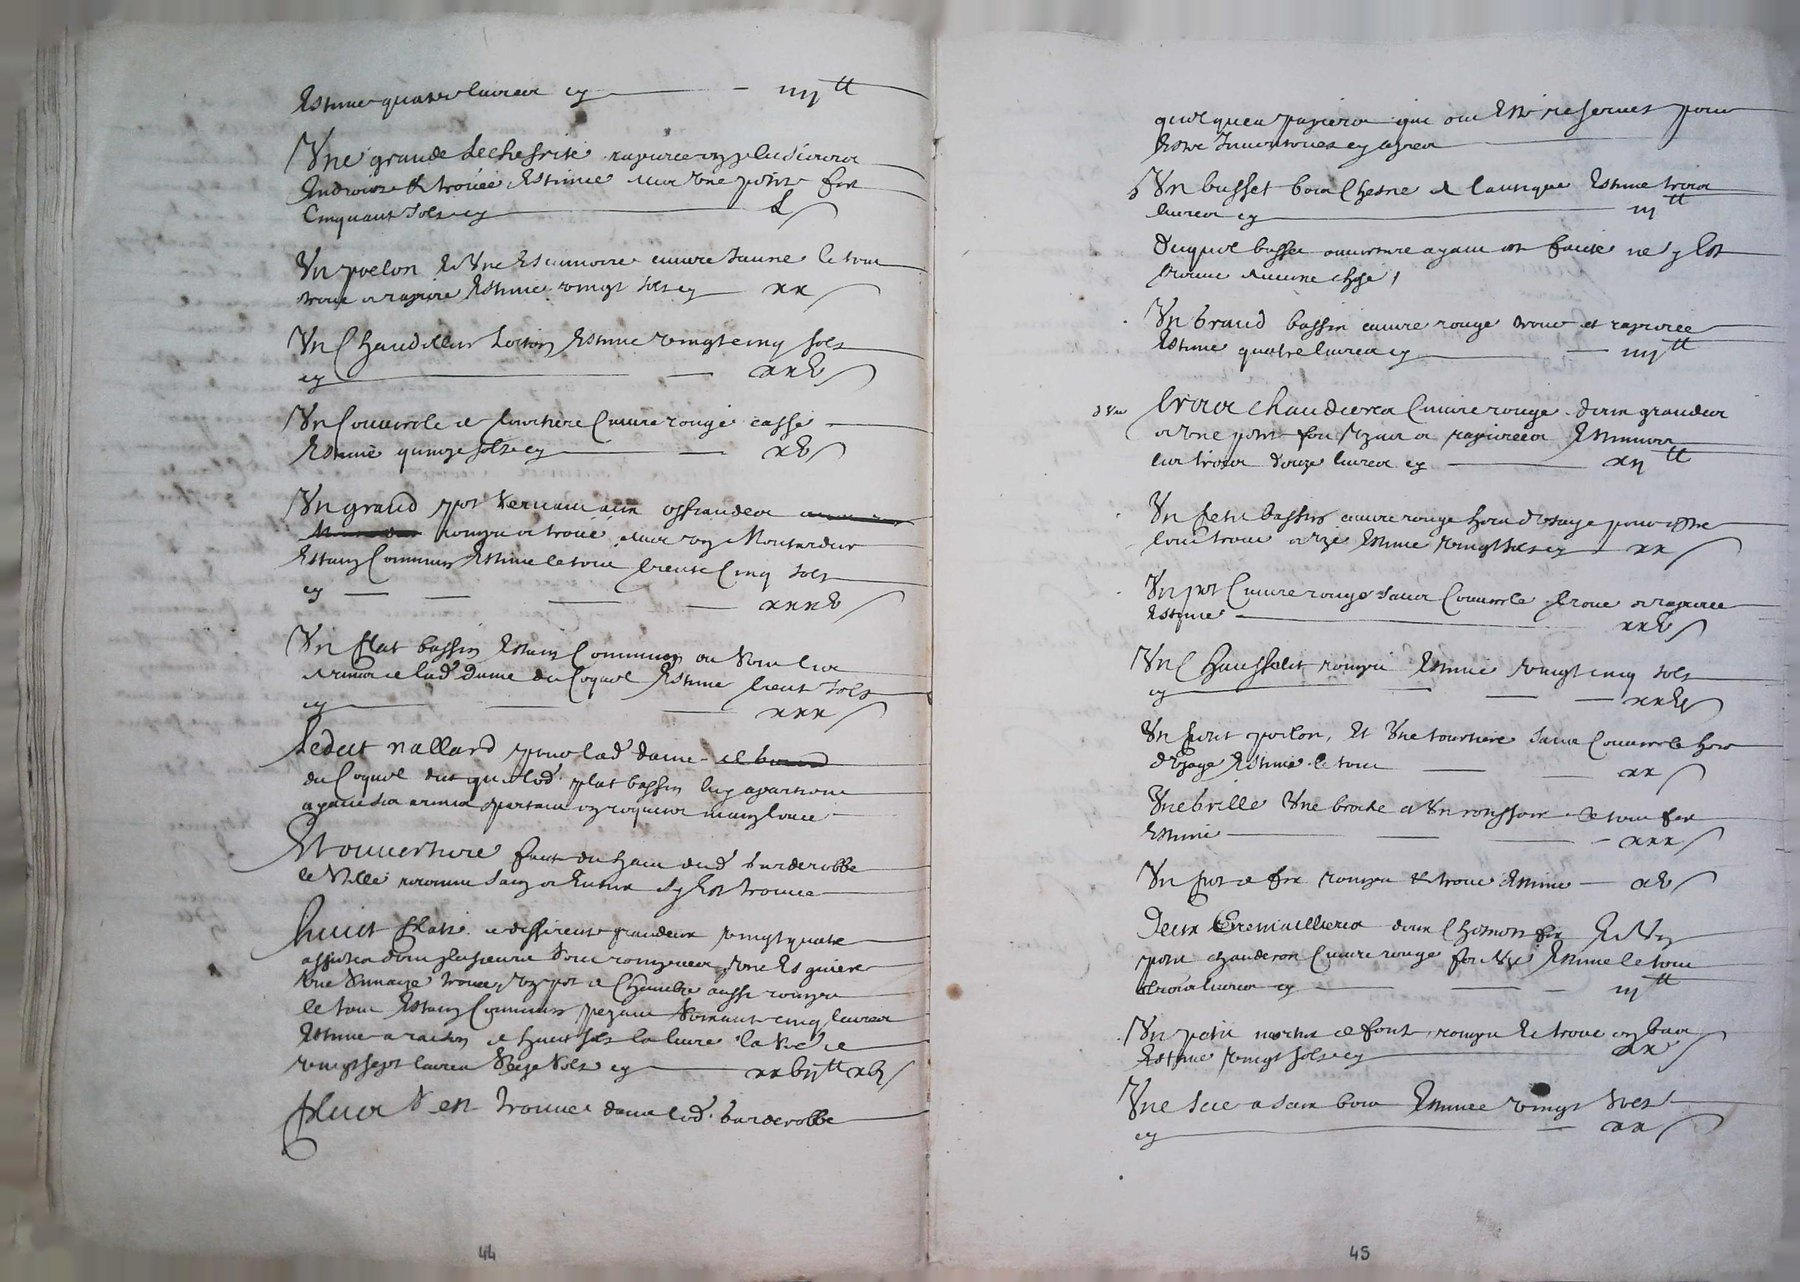 Estimé quatre livres cy iiij tt
Une grande lechefritte rapiecee en plusieurs
endroits et trouée estimée avec une petitte fer
Cinquant sols cy L s
Un poelon et Une Escumoire cuivre Jaune le tout
troué et rapiecé Estimé vingt sols cy xx s
Un Chandellier Loton Estimé vingt cinq sols
cy xxv s
Un Couvercle de tourtiere Cuivre rouge cassé
Estimé quinze sols cy xv s
Un grand pot
rompu et troué avec un Moutardier
Estain Commun Estimé le tout trente Cinq sols
cy xxxv s
Un plat bassin Estain Commun ou sont les
armes de lad. dame du Coquel Estimé trente sols
cy xxx s
Ledict Vallard pour lad. dame
du Coquel dict que led. plat bassin luy apartient
ayant ses armes partant en requiert mainlevée
Et ouverture faite du haut dud. Garderobbe
s'y Est trouvé
huict plats de differente grandeur vingt quatre
assiettes dont plusieurs sont rompuees, Une Esguiere
Une trouée, un pot de Chambre aussi rompu
le tout Estain Commun pezant soixante cinq livres
Estimé a raison de huict sols la livre
vingt sept livres sols cy
Plus s'est trouvé dans led. Garderobbe
44
quelques papiers qui ont Esté reservés pour
Estre Inventoriés cy apres
Un buffet bois Chesne a l'antique Estimé trois
livres cy iij tt
Duquel buffet ouverture ayant esté faicte ne s'y Est
trouvé aucune chose /
Un Grand bassin cuivre rouge troué et rapiecé
Estimé quatre livres cy iiij tt
Trois chaudieres Cuivre rouge dont grandeur
et une petit fort uzées et rapiecées Estimées
les trois douze livres cy xij tt
Un petit bassin cuivre rouge hors d'usage pour estre
tout troué et uzé Estimé vingt sols cy xx s
Un pot Cuivre rouge sans Couvercle troué et rapiecé
Estimé xxv s
Un Chausselit rompu Estimé vingt cinq sols
cy xxv s
Un petit poelon, Et Une tourtiere sans Couvercle hors
d'Usage Estimé le tout xx s
Une Grille Une broche et Un le tout fer
Estimé xxx s
Un pot de fer rompu et troué Estimé xv s
Deux Cremaillieres deux Chenets fer Et Un
petit chauderon Cuivre rouge fort Uzé Estimé le tout
trois livres cy iij tt
Un petit mortier de font rompu et troué en bas
Estimé vingt sols cy xx s
Une scie a scier bois Estimée vingt sols
cy xx s
45